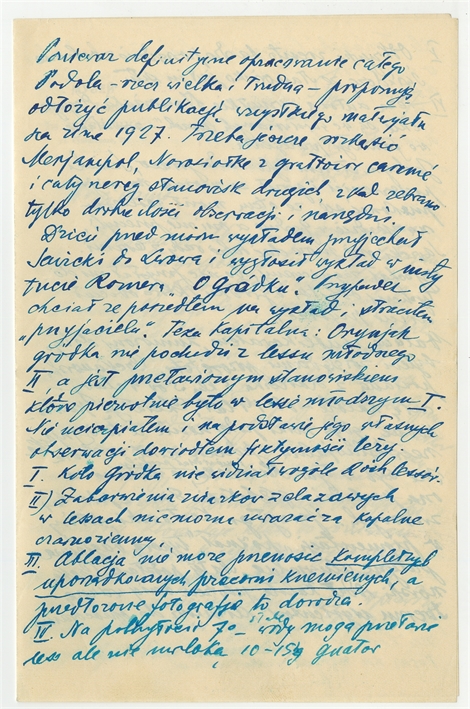 Ponieważ definitywne opracowanie całego
Podola – rzecz wielka i trudna – proponuję
odłożyć publikację wszystkiego materjału
na zimę 1927. Trzeba jeszcze
Marjampol, z grattoir carené
i cały szereg stanowisk drugich zkąd zebrano
tylko drobne ilości obserwacji i narzędzi.
Dzień przed moim wykładem przyjechał
Sawicki do Lwowa i wygłosił wykład w insty
tucie Romera „O Gródku".
chciał że poszedłem na wykład i straciłem
„przyjaciela". Teza kapitalna: Orynjak
gródka nie pochodzi z lessu młodszego
II, a jest przeławionym stanowiskiem
które pierwotnie było w lessie młodszym I.
Nie ucierpiałem i na podstawie jego własnych
obserwacji dowiodłem fiktywności tezy
I. Koło Gródka nie widział wogóle lessów.
II) Zabarwienia żelazawych
w lessach nie można uważać za kopalne
czarnoziemy.
III. Ablacja nie może przenosić kompletnych
uporządkowanych pracowni krzemiennych, a
przedłożone fotografje to dowodzą.
IV. Na pochyłości 7° wody mogą
less ale nie 10–15